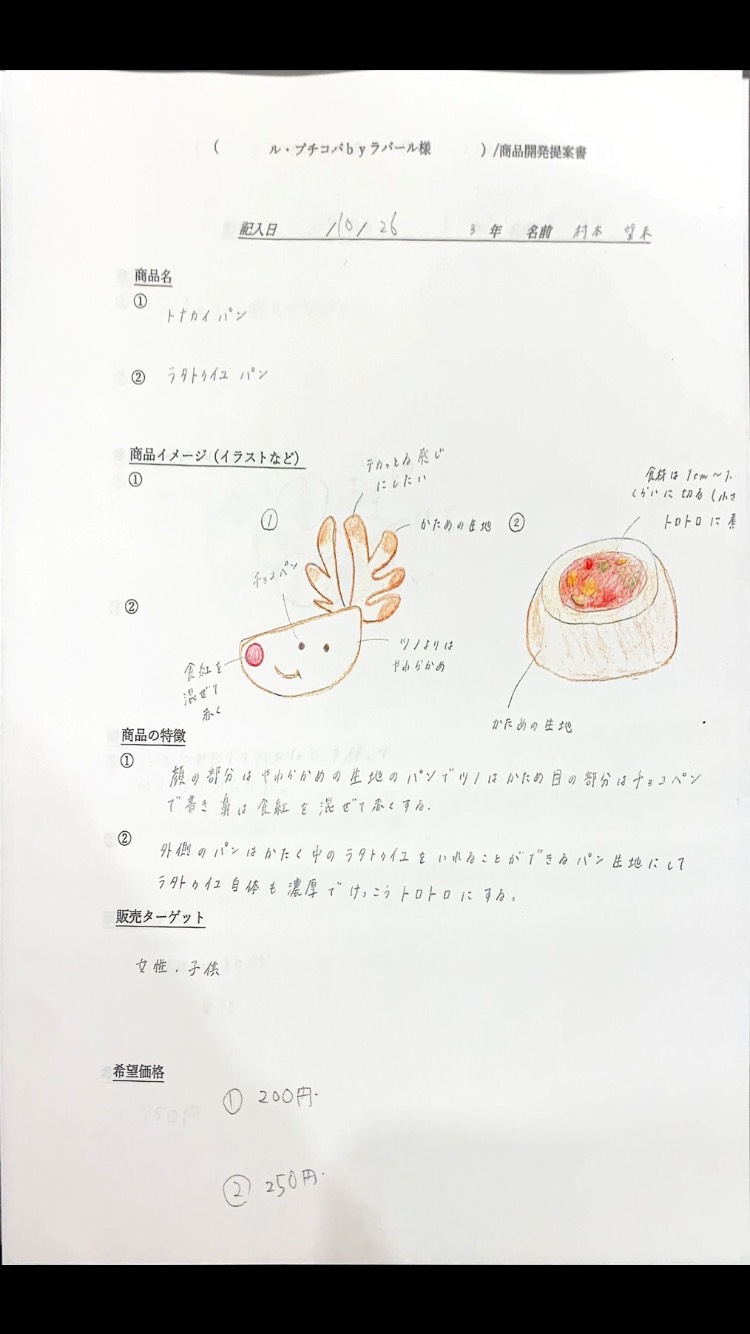 ( ル・プチコパbyラパール様 )/商品開発提案書
記入日 /10/26 3年 名前 村本 望来
商品名
① トナカイパン
② ラタトゥイユ パン
商品イメージ（イラストなど）
①
テカっとる感じ
にしたい
① かための生地
チョコペン
②
食紅を
混ぜて
赤く
ツノよりは
やわらかめ
②
食材は1cm～1.
くらいに切る(小さ
トロトロに
かための生地
商品の特徴
①
顔の部分はやわらかめの生地のパンでツノはかため目の部分はチョコペン
で書き鼻は食紅を混ぜて赤くする.
②
外側のパンはかたく中のラタトゥイユをいれることができるパン生地にして
ラタトゥイユ自体も濃厚でけっこうトロトロにする。
販売ターゲット
女性.子供
希望価格
① 200円.
② 250円.